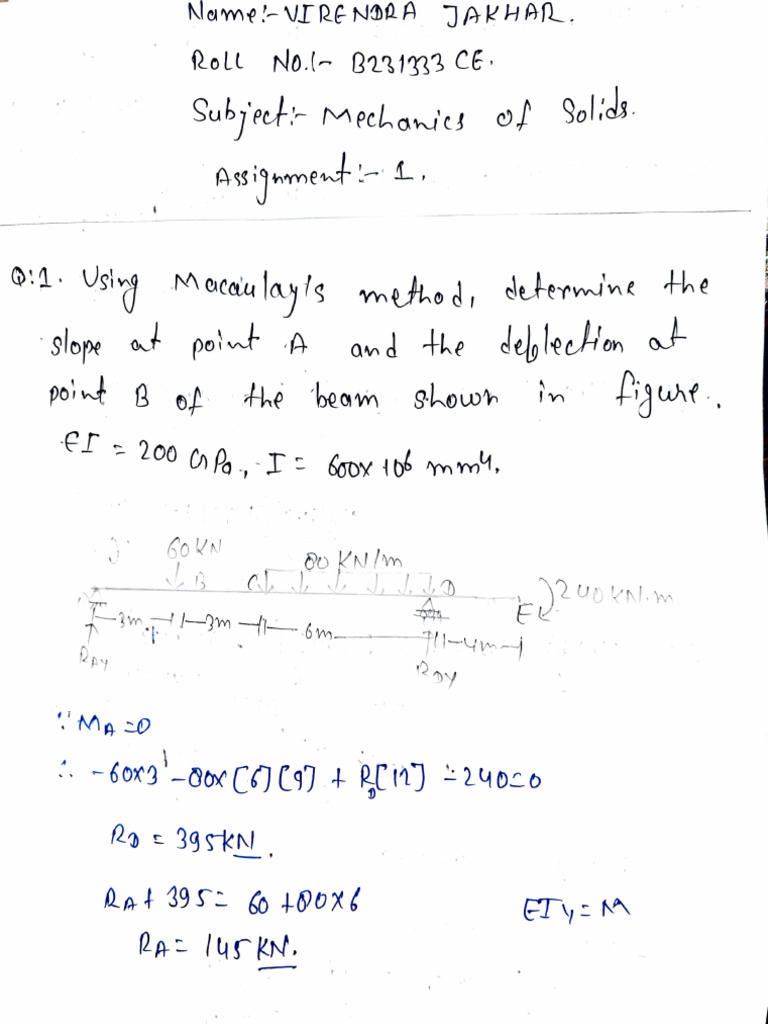 Name:- VIRENDRA JAKHAR.
Roll No.:- B231333 CE.
Subject:- Mechanics of Solids.
Assignment:- 1.
Q:1. Using Macaulay's method, determine the
slope at point A and the deflection at
point B of the beam shown in figure.
EI = 200 GPa., I = 600x106 mm4.
60 KN
80 KN/m
B C D
E 240 KN.m
3m 3m 6m 4m
RAY
RDY
∵ MA = 0
∴ -60x3 - 80x [6] [9] + RD [12] - 240=0
RD = 395KN.
RA + 395 = 60 + 80x6
EIy = M
RA = 145 KN.